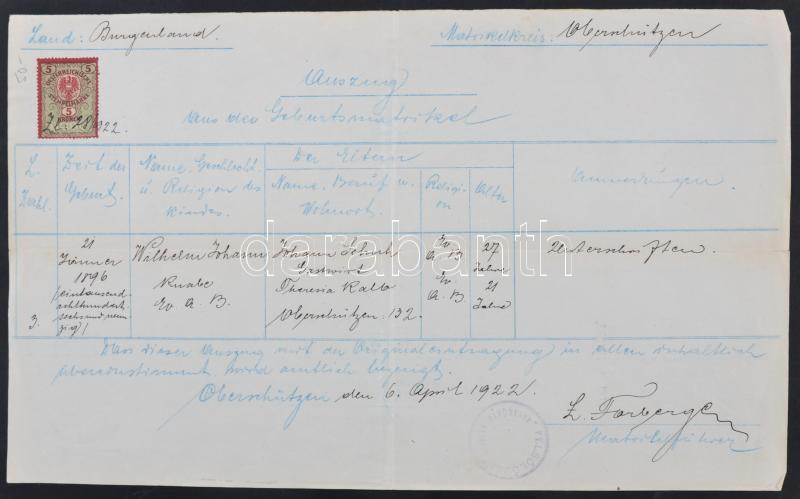 Land: Burgenland.
Matrikelkreis: Oberschützen
50-
5 5
ÖSTERREICHISCHE
STEMPELMARKE
5
KRONEN
Zl: 28/1922.
Auszug
aus der Geburtsmatrikel
L. Zahl.
Zeit der Geburt.
Name, Geschlecht u. Religion des Kindes.
Der Eltern
Name, Beruf u. Wohnort.
Religion
Alter
Anmerkungen.
3.
21
Jänner
1896
(eintausend
achthundert
sechsundneun
zig)
Wilhelm Johann
Knabe
Ev. A. B.
Johann
Gastwirt
Theresia Kalb
Oberschützen: 132.
Ev.
A. B.
Ev.
A. B.
27
Jahre
21
Jahre
Unterschriften.
darabanth
Dass dieser Auszug mit der Originaleintragung in allem inhaltlich
übereinstimmt wird amtlich bezeugt.
Oberschützen den 6. April 1922.
L. Farberger
Matrikelführer